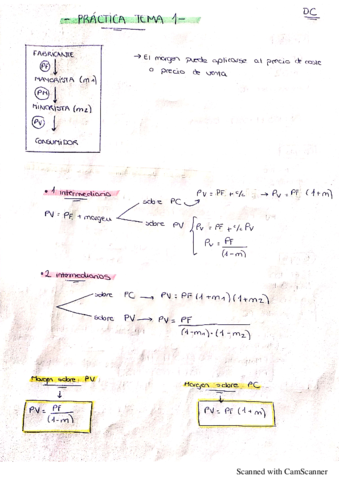 DC
- PRÁCTICA TEMA 1 -
FABRICANTE
PF
MAYORISTA (m1)
PM
MINORISTA (m2)
PV
CONSUMIDOR
→ El margen puede aplicarse al precio de coste
o precio de venta
* 1 intermediario
sobre PC → PV = PF + % → PV = PF (1+m)
PV = PF + margen
sobre PV { PV = PF + % PV
PV = PF / (1-m)
* 2 intermediarios
sobre PC → PV = PF (1+m1)(1+m2)
sobre PV → PV = PF / (1-m1)·(1-m2)
Margen sobre PV
PV = PF / (1-m)
Margen sobre PC
PV = PF (1+m)
Scanned with CamScanner